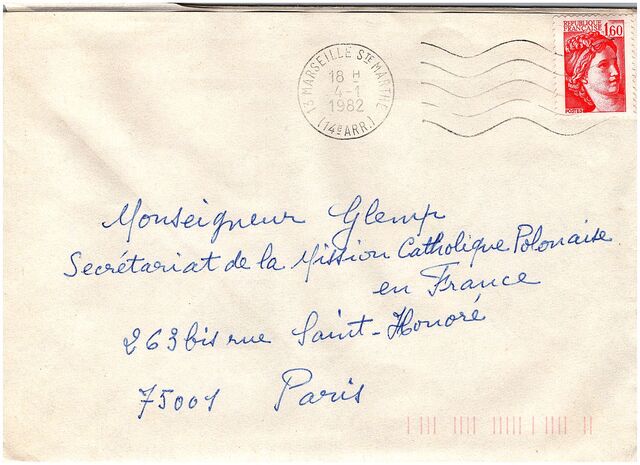 REPUBLIQUE
FRANCAISE
1,60
POSTES
13 MARSEILLE STE MARTHE
18 H
4-1
1982
(14e ARR.)
Monseigneur Glemp
Secrétariat de la Mission Catholique Polonaise
en France
263 bis rue Saint-Honoré
75001 Paris